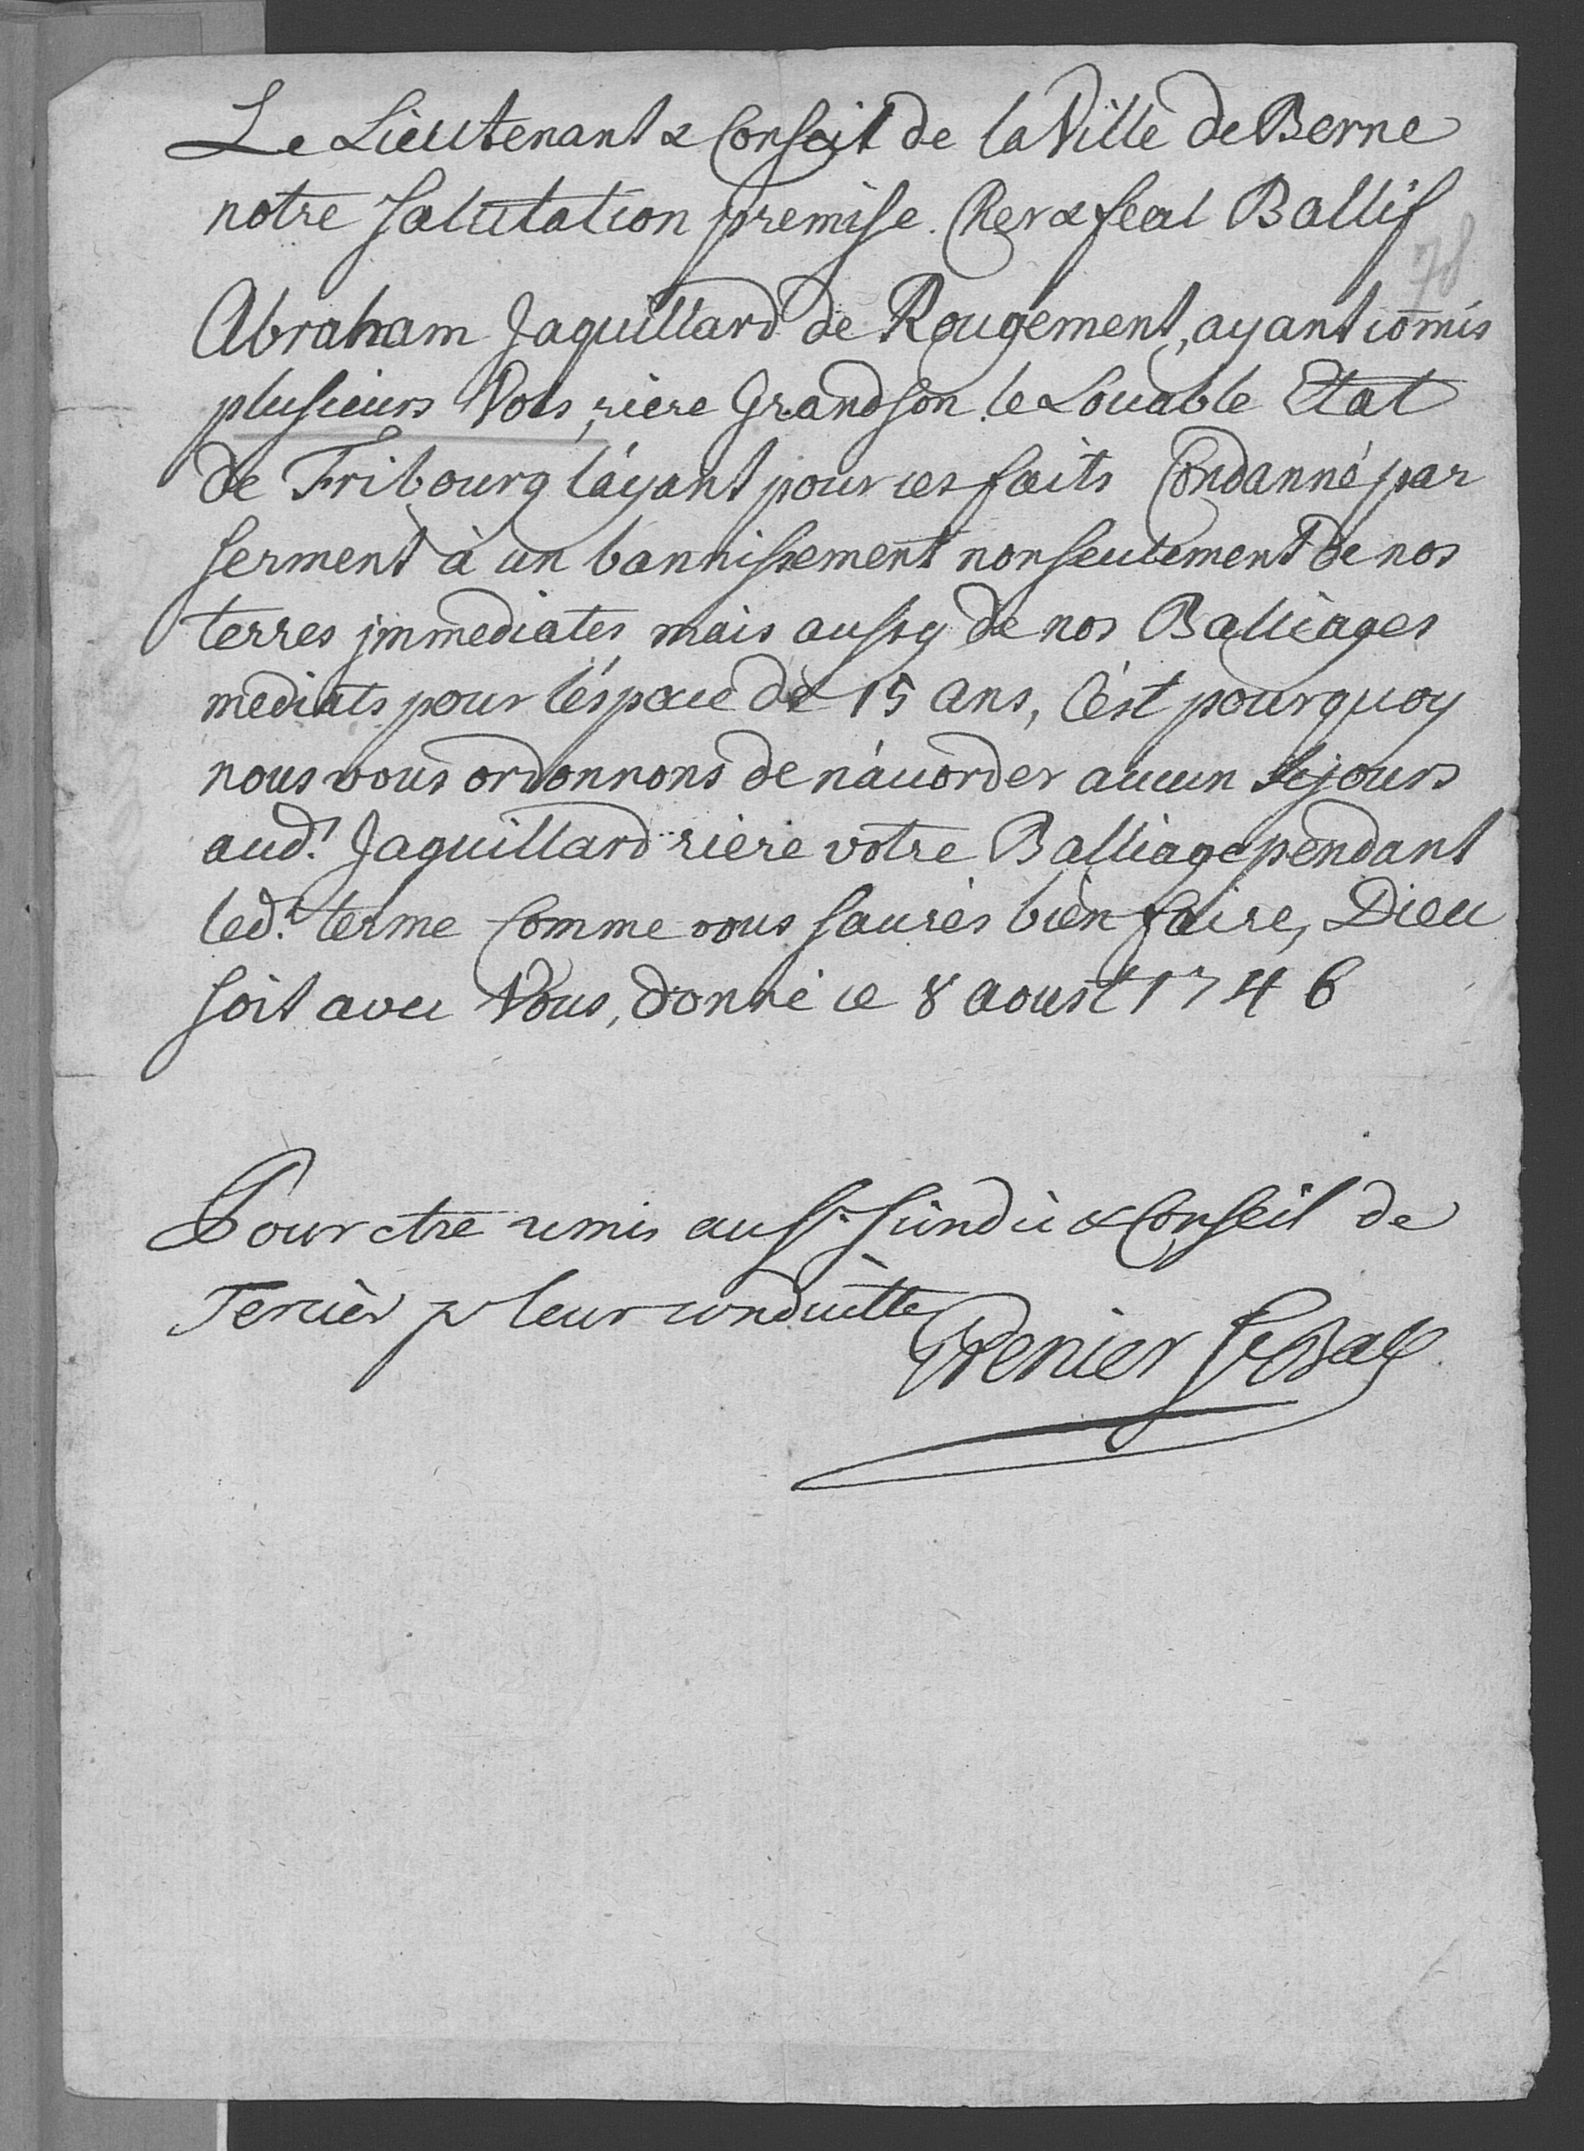 Le Lieutenant & Conseil de la Ville de Berne
notre Salutation premise. Cher & feal Ballif
78
Abraham Jaquillard de Rougement, ayant comis
plusieurs Vols, riere Grandson le Louable Etat
de Fribourg l'ayant pour ces faits Condanné par
serment à un bannissement non seulement de nos
terres jmmediates mais aussy de nos Balliages
mediats pour l'éspace de 15 ans, C'est pourquoy
nous vous ordonnons de n'accorder aucun Sejours
aud.t Jaquillard riere votre Balliage pendant
led.t terme Comme vous saurés bien faire, Dieu
soit avec Vous, donné ce 8 aoust 1746
Pour etre remis au Sr. Sindic & Conseil de
Tercier pr leur conduitte
Grenier